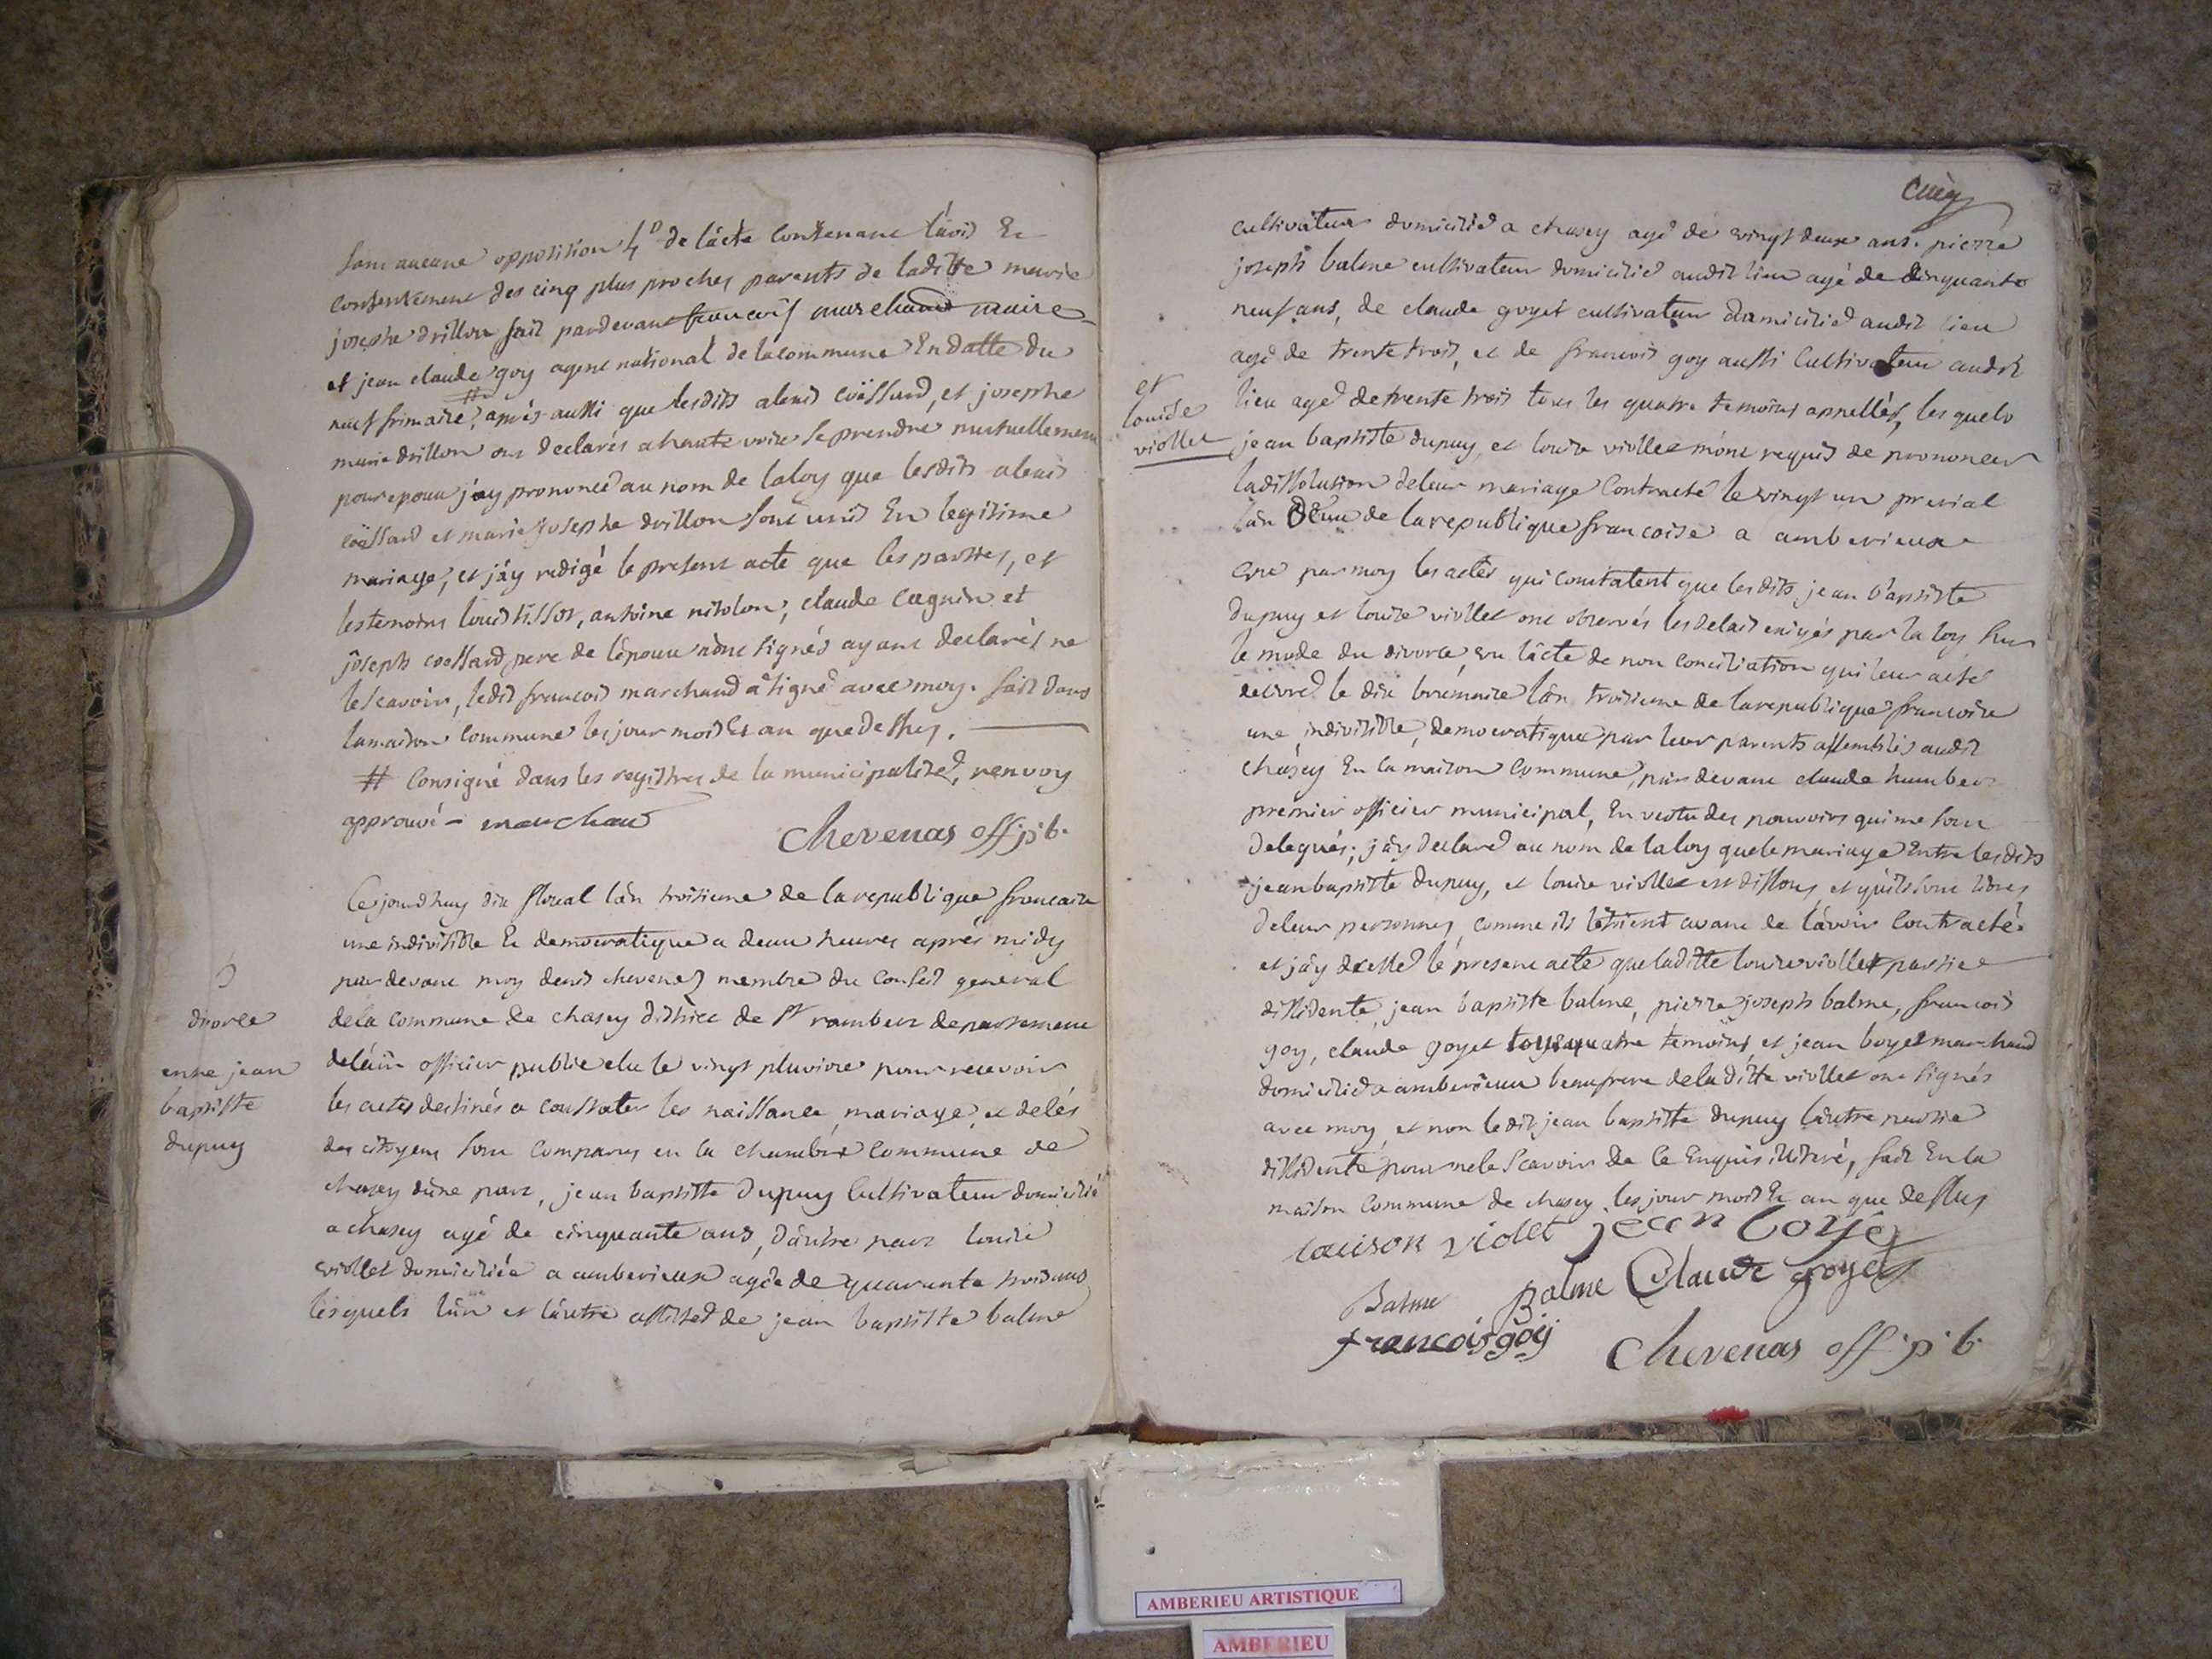 sans aucune opposition 4° de lácte contenant lávis Et
consentement des cinq plus proches parents de laditte marie
josephe drillon fait pardevant francois marchand maire
et jean claude goy agent national de la commune En datte du
neuf frimaire, # aprés aussi que lesdits alexis coässard, et josephe
marie drillon ont declarés a haute voix se prendre mutuellement
pour epoux jay prononcé au nom de la loy que lesdits alexis
coässard et marie josephe drillon sont unis En legitime
mariage, et jáy redigé le present acte que les parties, et
les temoins louis tissot, antoine nitolon, claude cagnin et
joseph coassard pere de lépoux nónt signés ayant declarés ne
le scavoir, ledit francois marchand à signé avec moy. fait dans
la maison commune les jour mois Et an que dessus.
# Consigné dans les registres de la municipalité, renvoy
approuvé - marchand
Chevenas off. p. b.
Cejourdhuy dix floreal lán troisieme de la republique francaise
une indivisible Et democratique a deux heures aprés midy
pardevant moy denis chevenas membre du conseil general
de la commune de chasey district de St rambert departement
de láin officier public elu le vingt pluviose pour recevoir
les actes destinés a constater les naissance, mariage, et decés
des citoyens sont comparus en la chambre commune de
chasey dúne part, jean baptiste dupuy cultivateur domicilié
a chasey agé de cinquante ans, dáutre part louise
viollet domiciliée a amberieux agée de quarante trois ans
lesquels lún et láutre assistés de jean baptiste balme
5
divorce
entre jean
baptiste
dupuy
cinq
cultivateur domicilié a chasey agé de vingt deux ans. pierre
joseph balme cultivateur domicilié audit lieu agé de cinquante
neuf ans, de claude goyet cultivateur domicilié audit lieu
agé de trente trois, et de francois goy aussi cultivateur audit
lieu agé de trente trois tous les quatre temoins appellés, les quels
jean baptiste dupuy, et louise viollet mónt requis de prononcer
la dissolution de leur mariage contracté le vingt un prerial
lán de la republique francoise a amberieux
et
louise
viollet
vue par moy les actes qui constatent que les dits jean baptiste
dupuy et louise viollet ont observés les delais exigés par la loy sur
le mode du divorce, vu lácte de non conciliation qui leur a eté
delivré le dix brumaire lán troisieme de la republique francoise
une, indivisible, democratique par leur parents assemblés audit
chasey En la maison commune, pardevant claude humbert
premier officier municipal, En vertu des pouvoirs qui me sont
delegués; jáy declaré au nom de la loy que le mariage Entre lesdits
jean baptiste dupuy, et louise viollet est dissous, et quíls sont libres
de leur personnes, comme ils létoient avant de lávoir contracté.
et jáy dressé le present acte que laditte louise viollet partie
dissidente, jean baptiste balme, pierre joseph balme, francois
goy, claude goyet tous quatre temoins, et jean boyet marchand
domicilié a amberieux beaufrere de la ditte viollet ont signés
avec moy, et non ledit jean baptiste dupuy láutre partie
dissidente pour ne le scavoir de ce Enquis illiteré, fait En la
maison commune de chasey les jour mois Et an que dessus
louison violet jean boyet
Balme Balme Claude goyet
francois goy Chevenas off. p. b.
AMBERIEU ARTISTIQUE
AMBERIEU